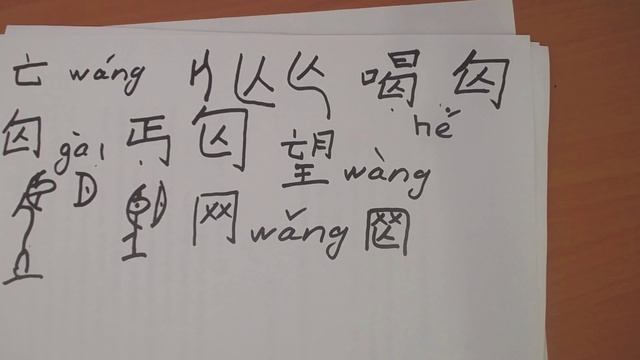 亡 wáng 亾 喝 匃
hě
匃 gài 丐 匃 望 wàng
网 wǎng